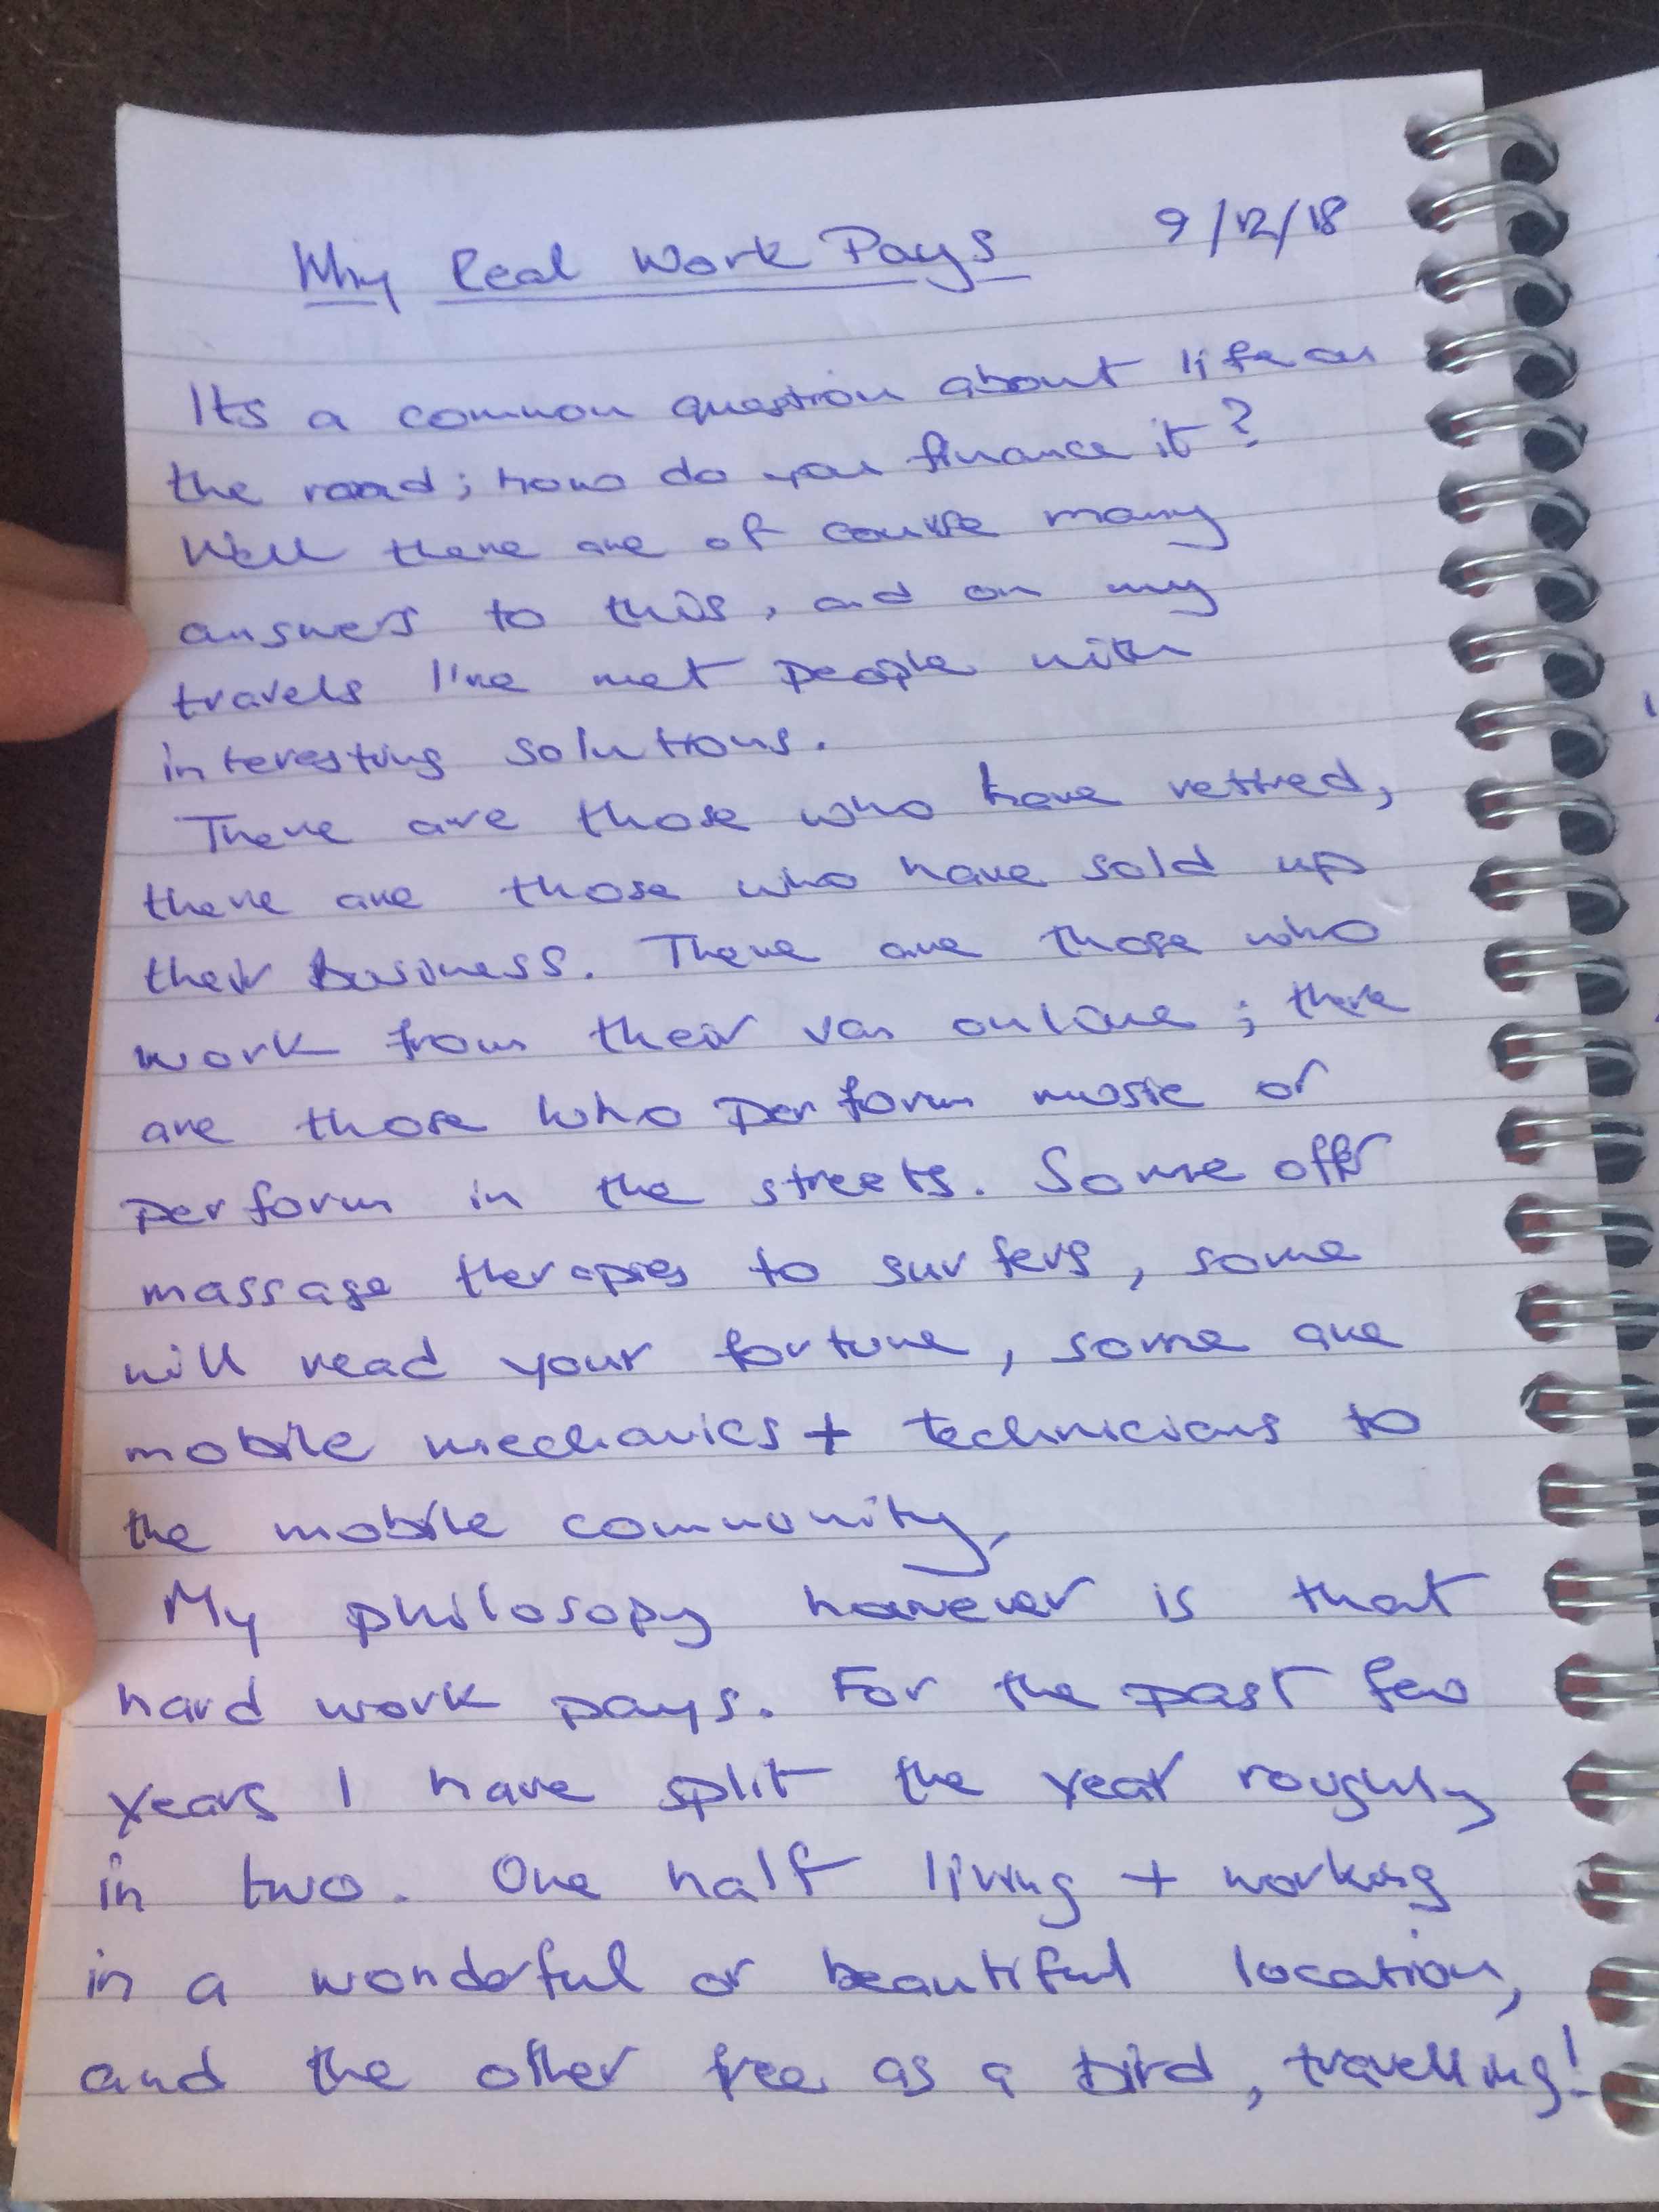 Why Real Work Pays 9/12/18
Its a common question about life on
the road; how do you finance it?
Well there are of course many
answers to this, and on my
travels I've met people with
interesting solutions.
There are those who have retired,
there are those who have sold up
their business. There are those who
work from their van online; there
are those who perform music or
perform in the streets. Some offer
massage therapies to surfers, some
will read your fortune, some are
mobile mechanics + technicians to
the mobile community.
My philosopy however is that
hard work pays. For the past few
years I have split the year roughly
in two. One half living + working
in a wonderful or beautiful location,
and the other free as a bird, travelling!